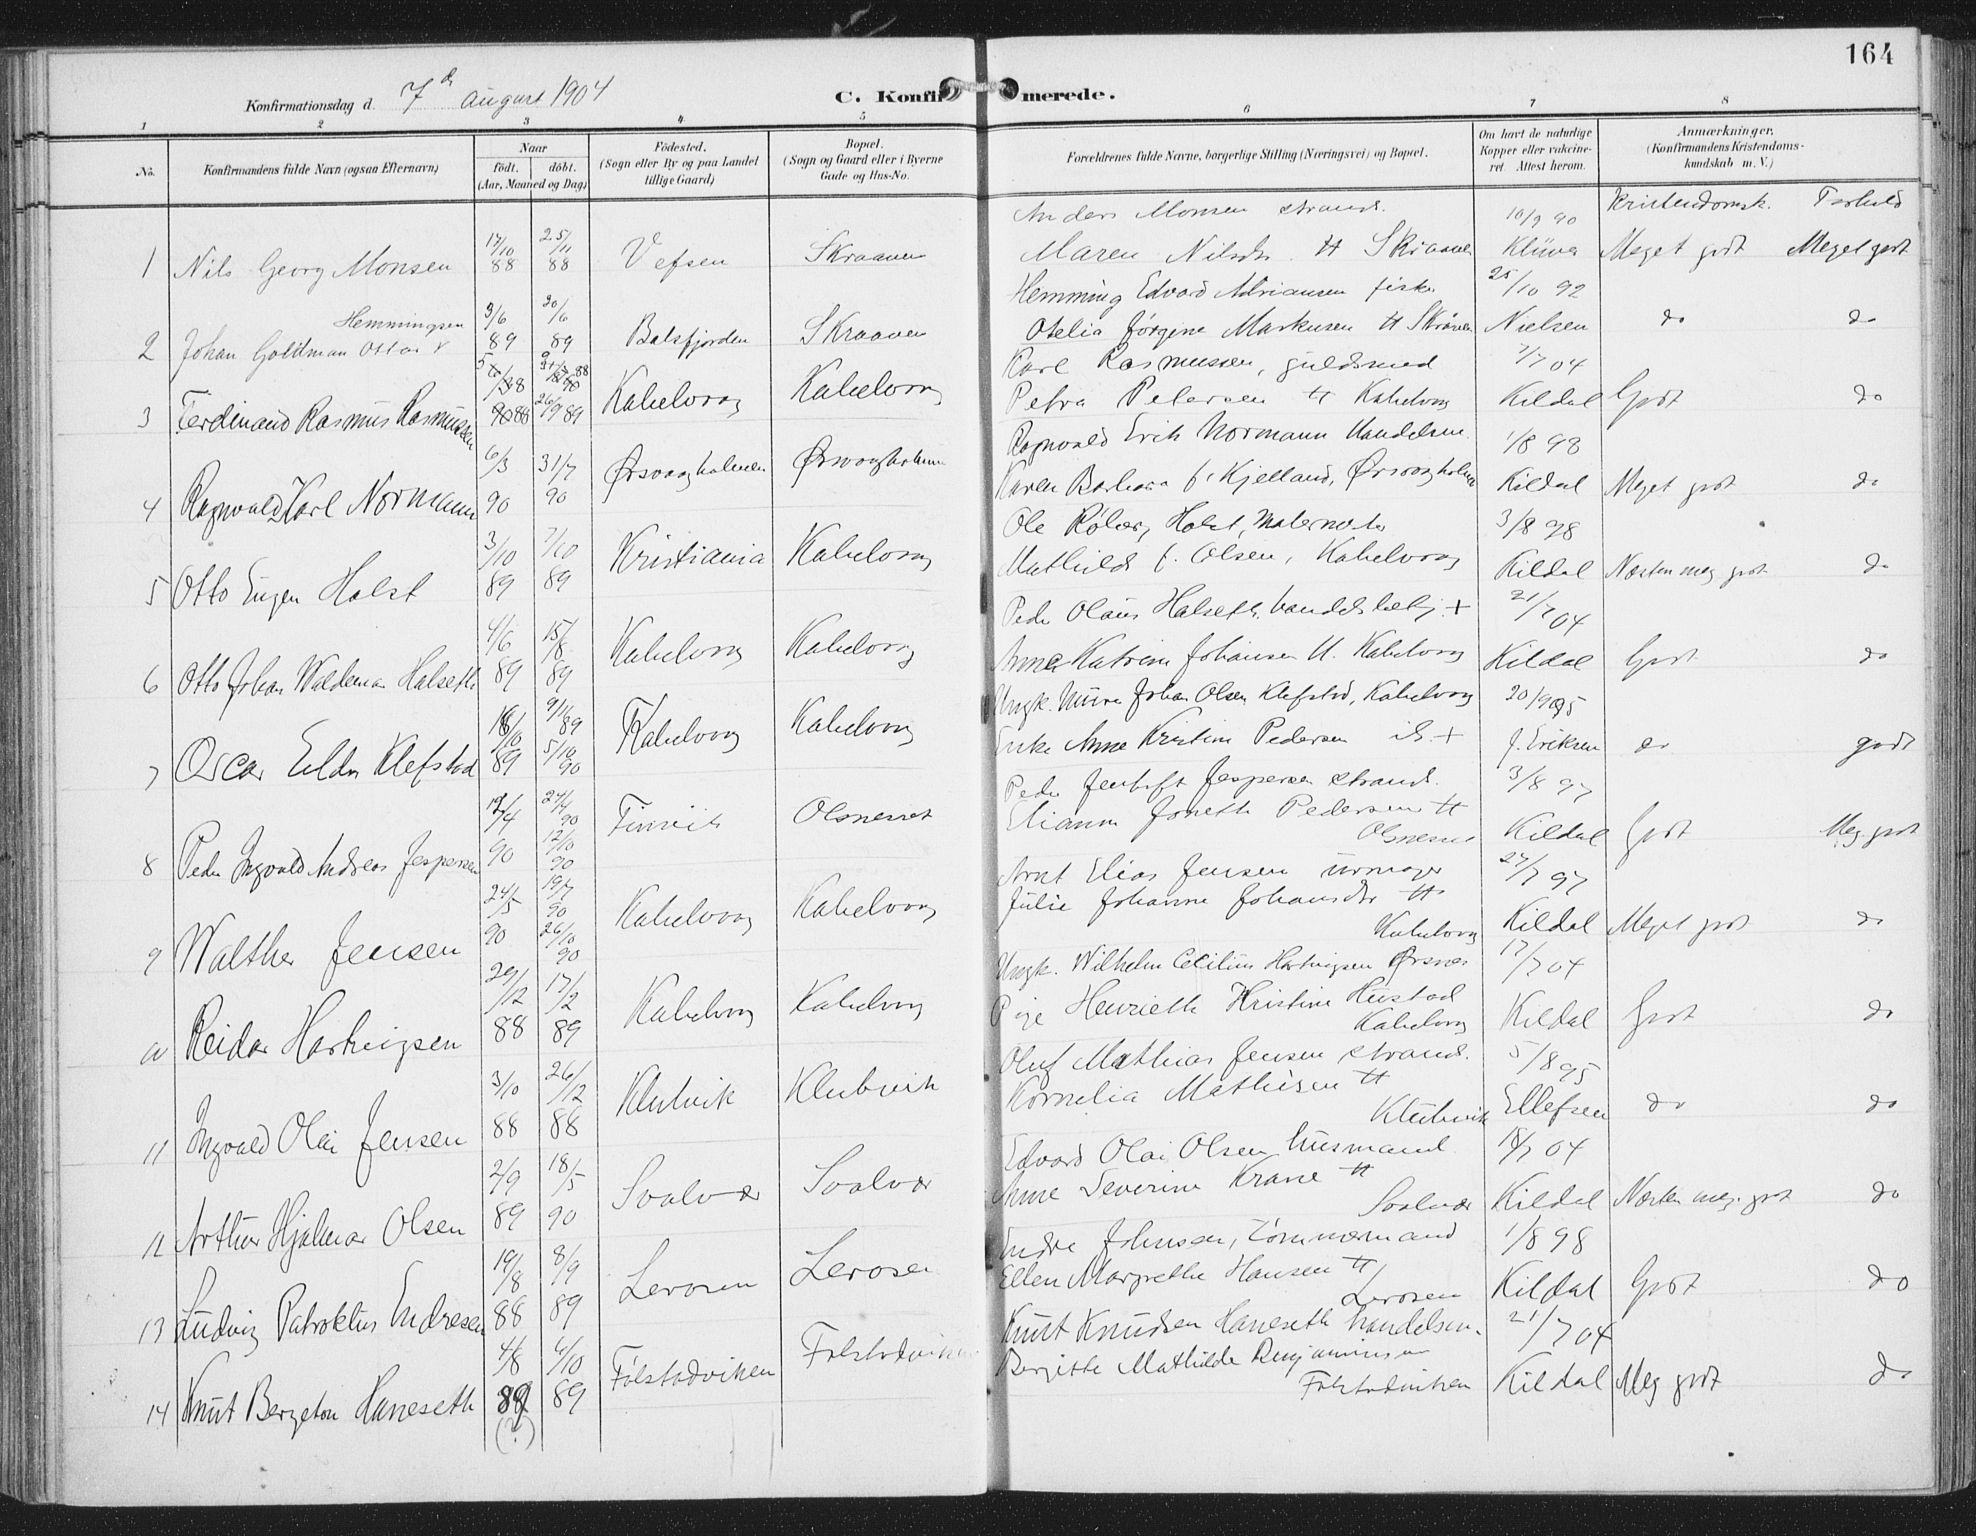 164
Konfirmationsdag d. 7de august 1904
C. Konfirmerede.
1 2 3 4 5 6 7 8
No.
Konfirmandens fulde Navn (ogsaa Efternavn)
Naar
født. døbt.
(Aar, Maaned og Dag)
Fødested.
(Sogn eller By og paa Landet
tillige Gaard)
Bopæl.
(Sogn og Gaard eller i Byerne
Gade og Hus-No.
Forældrenes fulde Navne, borgerlige Stilling (Næringsvei) og Bopæl.
Om havt de naturlige
Kopper eller vakcine-
ret. Attest herom.
Anmærkninger.
(Konfirmandens Kristendoms-
kundskab m. V.)
Kristendomsk. Forhold
Anders Monsen strands. 10/9 90
1 Nils Georg Monsen 17/10 88 25/11 88 Vefsen Skraaven Maren Nilsdr. H Skraaven Klüwa Meget godt Meget godt
Hemming Edvard Adriansen fisker 25/10 92
2 Johan Goldman Ottar Hemmingsen 3/6 89 20/6 89 Balsfjorden Skraaven Otelia Jørgine Markusen H Skraaven Nielsen do do
Karl Rasmussen, guldsmed 7/7 04
3 Ferdinand Rasmus Rasmussen 88 26/9 89 Kabelvaag Kabelvaag Petra Petersen H Kabelvaag Kildal Godt do
Ragnvald Erik Normann Handelsm. 1/8 98
4 Ragnvald Karl Normann 6/3 90 31/7 90 Ørsvaagholmen Ørsvaagholmen Karen Barbara f. Kjelland, Ørsvaagholmen Kildal Meget godt do
Ole Holst, Malermester 3/8 98
5 Otto Eugen Holst 3/10 89 7/10 89 Kristiania Kabelvaag Mathilde f. Olsen, Kabelvaag Kildal Næsten meg godt do
Peder Olaus Halseth, handelsbetj. + 21/7 04
6 Otto Johan Waldemar Halseth 4/6 89 15/8 89 Kabelvaag Kabelvaag Anna Katrine Johansen H. Kabelvaag Kildal Godt do
Ungk. Murer Johan Olsen Klefstad, Kabelvaag 20/9 95
7 Oscar Eldor Klefstad 89 9/11 89 5/10 90 Kabelvaag Kabelvaag Enke Anne Kristine Pedersen ib. + J. Eriksen do godt
Peder Jentoft Jespersen strands. 3/8 97
8 Peder Ingvald Andreas Jespersen 90 27/4 90 12/10 90 Finvik Olsnesset Elianne Jonette Pedersen H Olsnesset Kildal Godt Meg. godt
Arnt Elias Jensen urmager 27/7 97
9 Walther Jensen 24/5 90 19/7 90 26/10 90 Kabelvaag Kabelvaag Julie Johanne Johansdr H Kabelvaag Kildal Meget godt do
Ungk. Wilhelm Cecilius Hartvigsen Ørsnes 17/7 04
10 Reidar Hartvigsen 29/12 88 17/2 89 Kabelvaag Kabelvaag Pige Henriette Kristine Hustad Kabelvaag Kildal Godt do
Oluf Mathias Jensen strands. 5/8 95
11 Ingvald Olai Jensen 3/10 88 26/12 88 Klubvik Klubvik Kornelia Mathisen H Klubvik Ellefsen do do
Edvard Olai Olsen husmand 18/7 04
12 Arthur Hjalmar Olsen 2/9 89 18/5 90 Svolvær Svolvær Anne Severine Krane H Svolvær Kildal Næsten meg. godt do
Endre Johnsen, Tømmermand 1/8 98
13 Ludvig Patroklus Endresen 19/8 88 8/9 89 Lerosen Lerosen Ellen Margrethe Hansen H Lerosen Kildal Godt do
Knut Knudsen Haneseth handelsm. 21/7 04
14 Knut Bergeton Haneseth 4/8 89 (?) 6/10 89 Følstadviken Følstadviken Bergitte Mathilde Benjaminsen Følstadviken Kildal Meg godt do